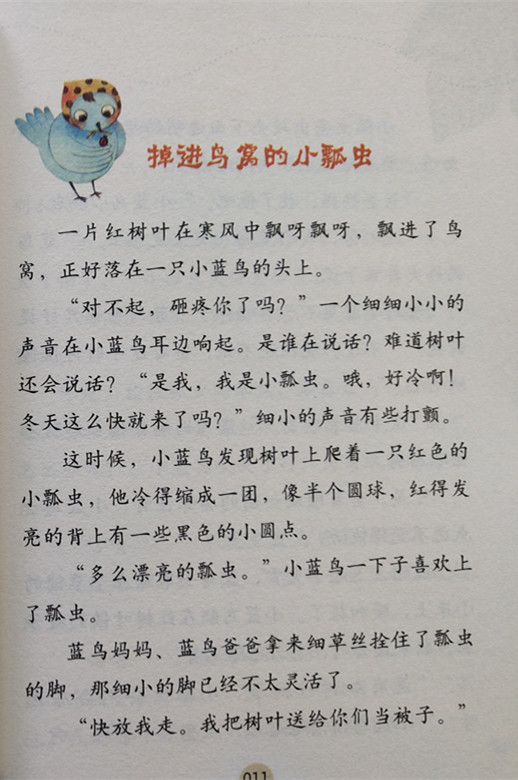 掉进鸟窝的小瓢虫
一片红树叶在寒风中飘呀飘呀，飘进了鸟
窝，正好落在一只小蓝鸟的头上。
“对不起，砸疼你了吗？”一个细细小小的
声音在小蓝鸟耳边响起。是谁在说话？难道树叶
还会说话？“是我，我是小瓢虫。哦，好冷啊！
冬天这么快就来了吗？”细小的声音有些打颤。
这时候，小蓝鸟发现树叶上爬着一只红色的
小瓢虫，他冷得缩成一团，像半个圆球，红得发
亮的背上有一些黑色的小圆点。
“多么漂亮的瓢虫。”小蓝鸟一下子喜欢上
了瓢虫。
蓝鸟妈妈、蓝鸟爸爸拿来细草丝拴住了瓢虫
的脚，那细小的脚已经不太灵活了。
“快放我走。我把树叶送给你们当被子。”
011